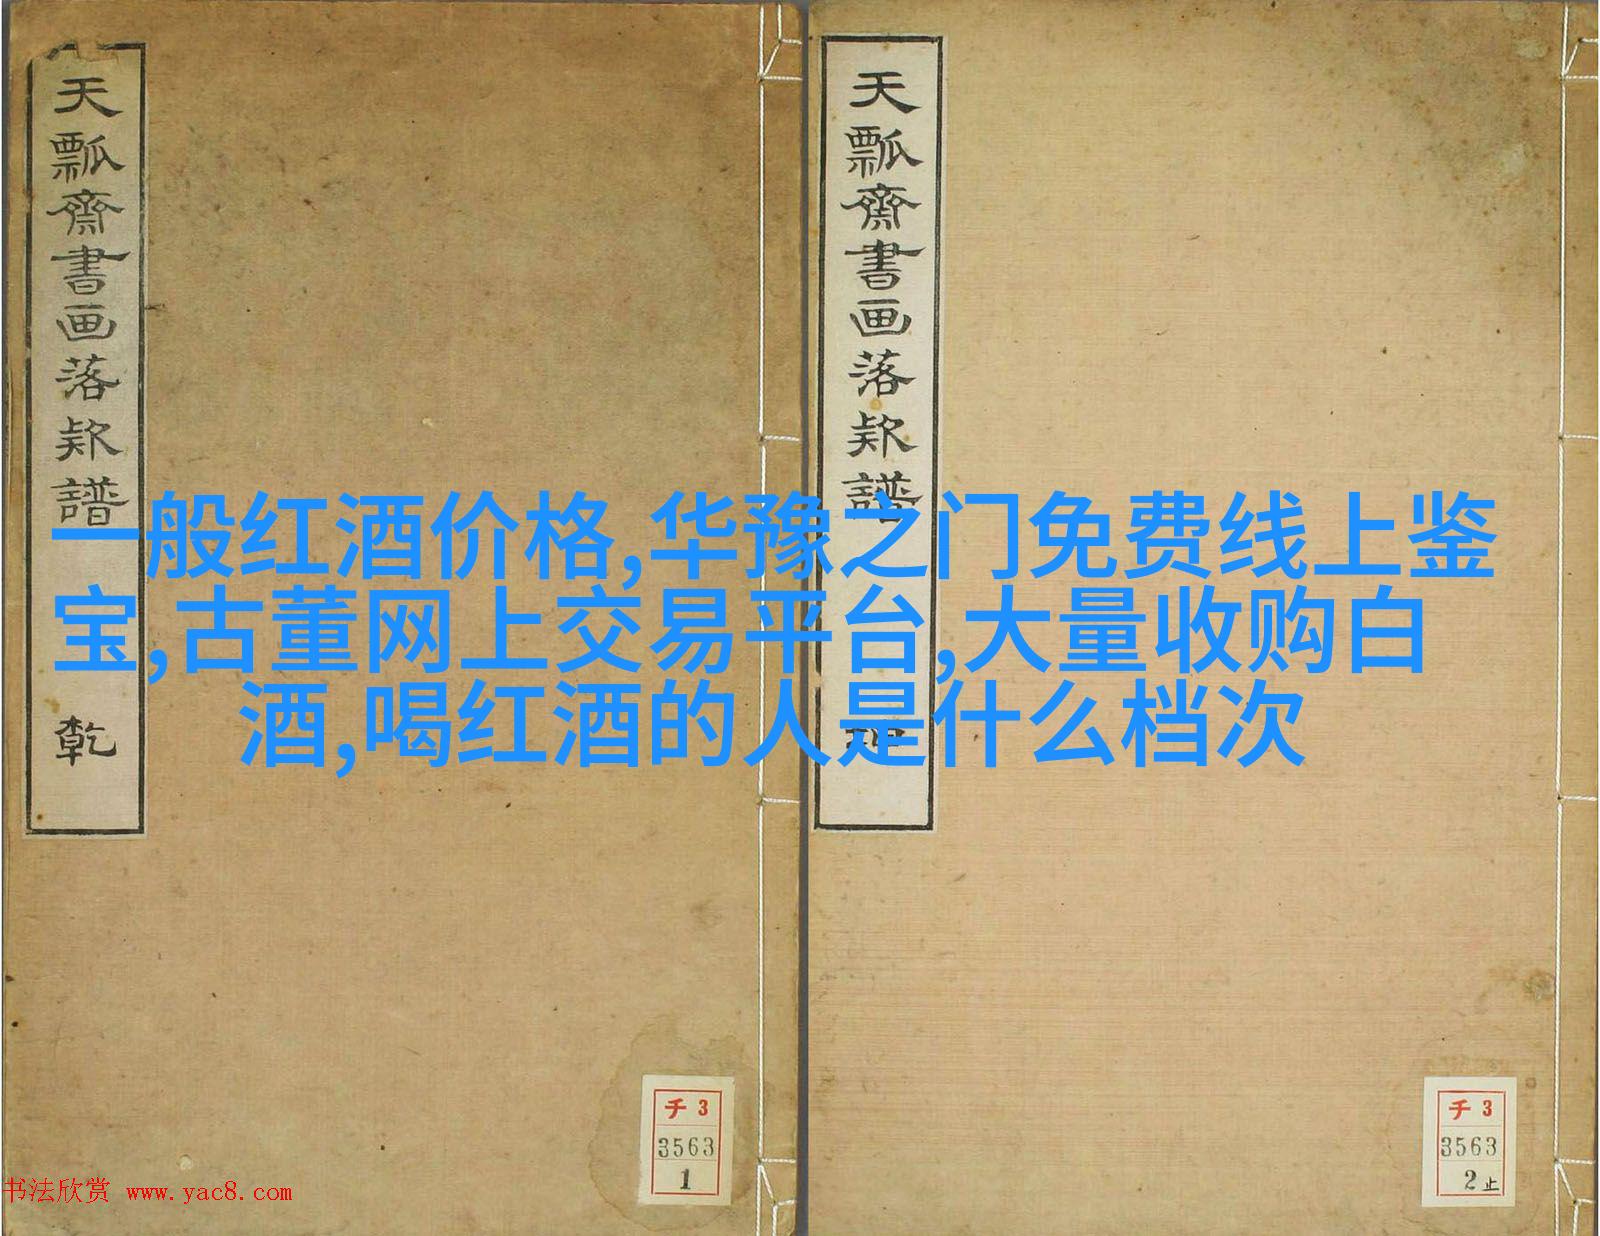 天瓢齋書画落款譜 乾
天瓢齋書画落款譜
一般红酒价格,华豫之门免费线上鉴
宝,古董网上交易平台,大量收购白
酒,喝红酒的人是什么档次
チ3
3563
1
チ3
3563
2止
书法欣赏 www.yac8.com